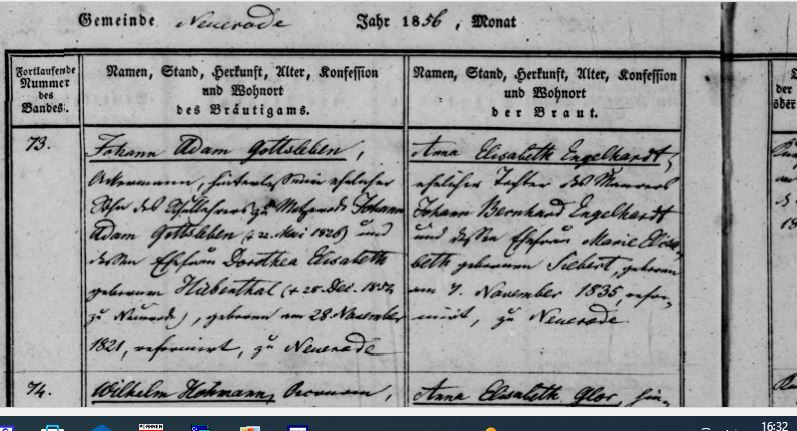 Gemeinde Neuerode Jahr 1856, Monat
Fortlaufende Nummer des Bandes.
Namen, Stand, Herkunft, Alter, Konfession
und Wohnort
des Bräutigams.
Namen, Stand, Herkunft, Alter, Konfession
und Wohnort
der Braut.
73.
Johann Adam Gottsleben,
Ackermann, hinterlassener ehelicher
Sohn des Schullehrers zu Motzenrode Johann
Adam Gottsleben († 22. Mai 1826) und
dessen Ehefrau Dorothea Elisabeth
geborenen Hiebenthal († 28. Dez.
zu Neuerode), geboren am 28. November
1821, reformirt, zu Neuerode
Anna Elisabeth Engelhardt,
eheliche Tochter des Maurers
Johann Bernhard Engelhardt
und dessen Ehefrau Marie Elisa-
beth geborenen Siebert, geboren
am 7. November 1835, refor-
mirt, zu Neuerode.
74.
Wilhelm Hohmann, Oeconom,
Anna Elisabeth Glor, hin-
der
16:32